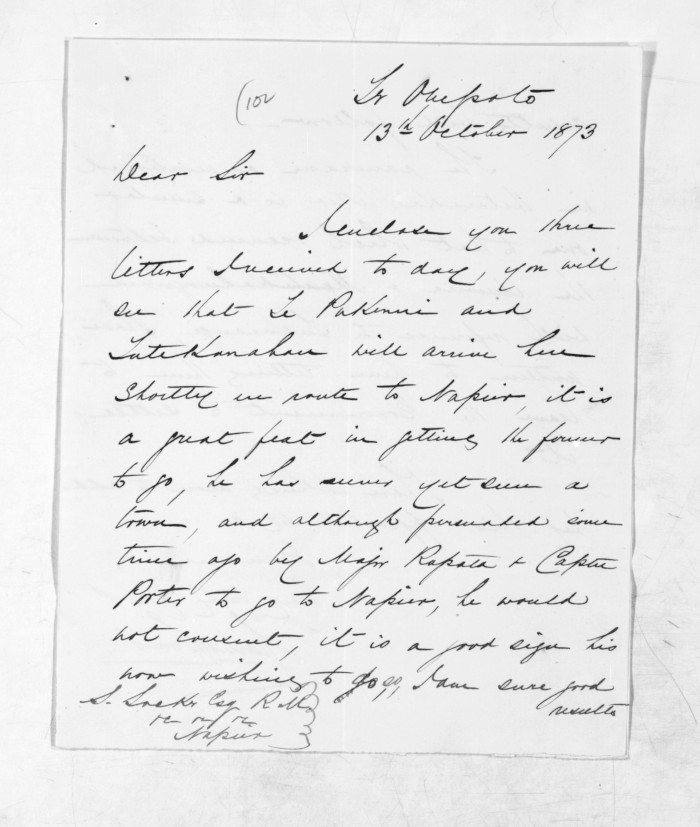 (102
Te Onepoto
13th October 1873
Dear Sir
I enclose you three
letters I received to day, you will
see that Te Pakenui and
Tutekanahau will arrive here
Shortly en route to Napier, it is
a great feat in getting the former
to go, he has never yet seen a
town, and although persuaded some
time ago by Major Rapata & Captn
Porter to go to Napier, he would
not consent, it is a good sign his
now wishing to do so, I am sure good
results
S. Locke Esq R.M
&c &c &c
Napier